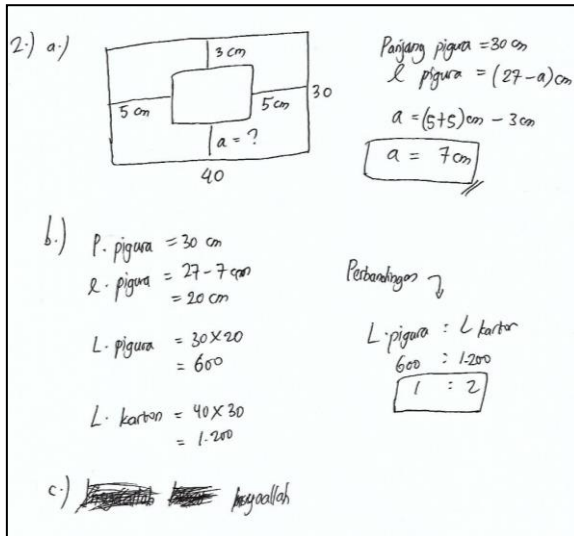 2.) a.)
3 cm
5 cm
5 cm
30
a = ?
40
Panjang pigura = 30 cm
l pigura = (27 - a) cm
a = (5+5) cm - 3 cm
a = 7 cm
b.)
P. pigura = 30 cm
l. pigura = 27 - 7 cm
= 20 cm
L. pigura = 30 x 20
= 600
L. karton = 40 x 30
= 1.200
Perbandingan
L. pigura : L karton
600 : 1.200
1 : 2
c.)